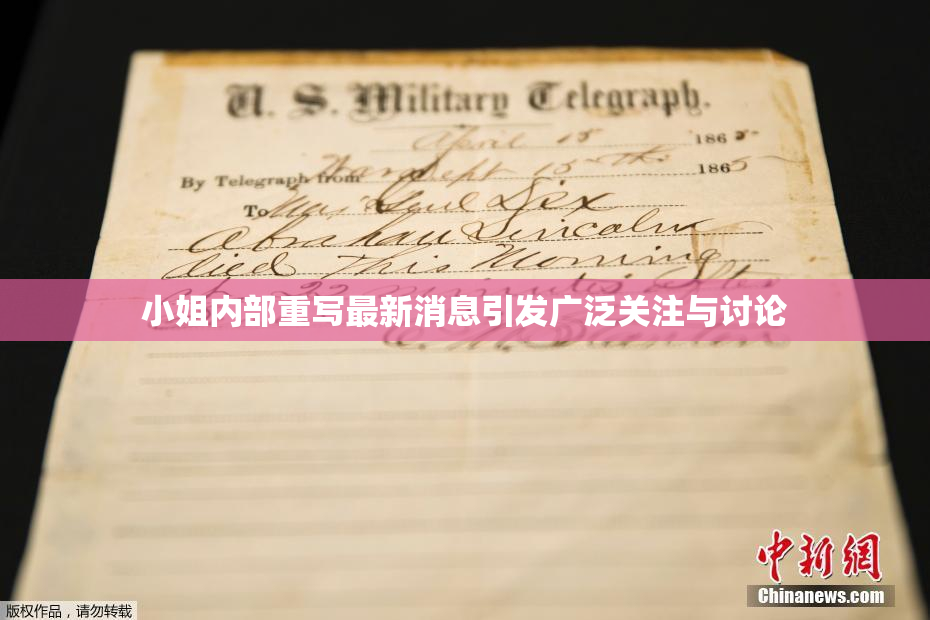 U. S. Military Telegraph.
April 15 1865
By Telegraph from War Dept 15th 1865
To Maj Genl Dix
Abraham Lincoln
died This Morning
at 22 minutes after
小姐内部重写最新消息引发广泛关注与讨论
中新网
Chinanews.com
版权作品，请勿转载